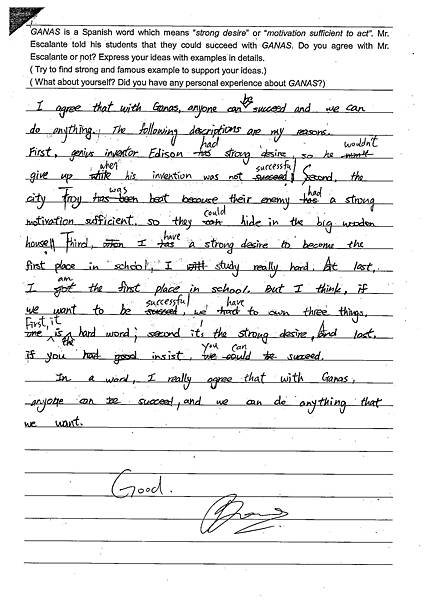 GANAS is a Spanish word which means "strong desire" or "motivation sufficient to act". Mr.
Escalante told his students that they could succeed with GANAS. Do you agree with Mr.
Escalante or not? Express your ideas with examples in details.
( Try to find strong and famous example to support your ideas.)
( What about yourself? Did you have any personal experience about GANAS?)
be
I agree that with Ganas, anyone can succeed and we can
do anything. The following descriptions are my reasons.
had wouldn't
First, genius inventor Edison has strong desire, so he
when successful
give up his invention was not succeed! Second, the
was had
city Troy has been beat because their enemy has a strong
could
motivation sufficient, so they can hide in the big wooden
have
house!! Third, I has a strong desire to become the
first place in school, I study really hard. At last,
am
I got the first place in school. But I think, if
successful have
we want to be succeed, we to own three things,
First, it
one is hard word; second it's the strong desire, And last,
the you can
if you had good insist, we could be succeed.
In a word, I really agree that with Ganas,
anyone can be succeed, and we can do anything that
we want.
Good.